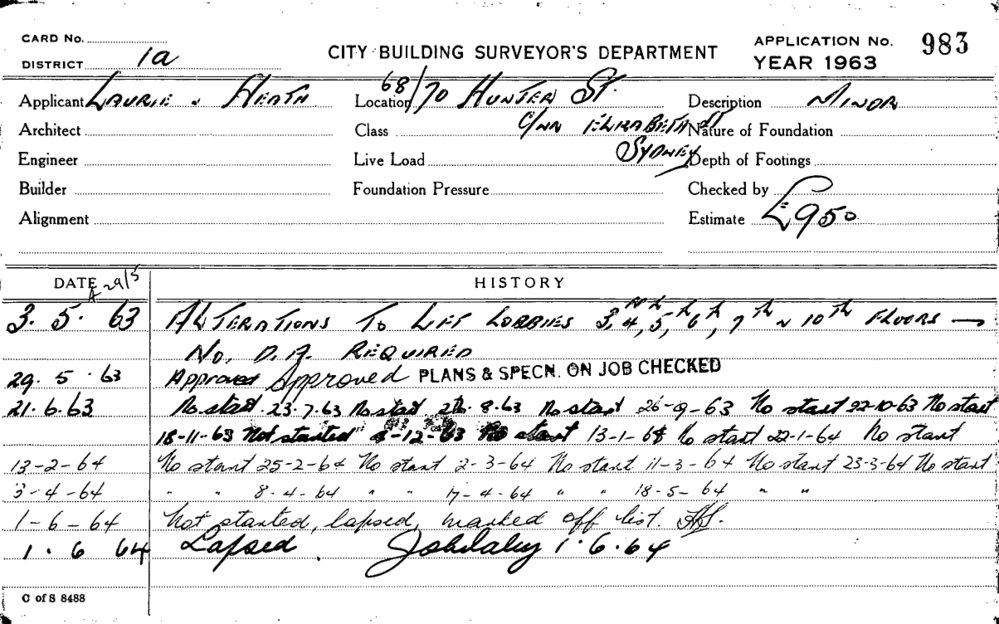 CARD No.
DISTRICT 1a
CITY BUILDING SURVEYOR'S DEPARTMENT
APPLICATION No. 983
YEAR 1963
Applicant LAURIE & HEATH Location 68/70 HUNTER ST. Description MINOR
Architect Class C/NR ELIZABETH ST Nature of Foundation
Engineer Live Load SYDNEY Depth of Footings
Builder Foundation Pressure Checked by
Alignment Estimate £950
DATE 29/5 HISTORY
3. 5. 63 ALTERATIONS TO LIFT LOBBIES 3, 4, 5th, 6th, 7th & 10th FLOORS —
No. D.A. REQUIRED
29. 5. 63 Approved Approved PLANS & SPECN. ON JOB CHECKED
21. 6. 63 No start 23.7.63 No start 8.63 No start 26-9-63 No start 22-10-63 No start
18-11-63 Not started 12-63 No start 13-1-64 No start 22-1-64 No start
13-2-64 No start 25-2-64 No start 2-3-64 No start 11-3-64 No start 23-3-64 No start
3-4-64 " " 8-4-64 " " 17-4-64 " " 18-5-64 " "
1-6-64 Not started, lapsed, marked off list.
1. 6 64 Lapsed. 1.6.64
C of S 8488